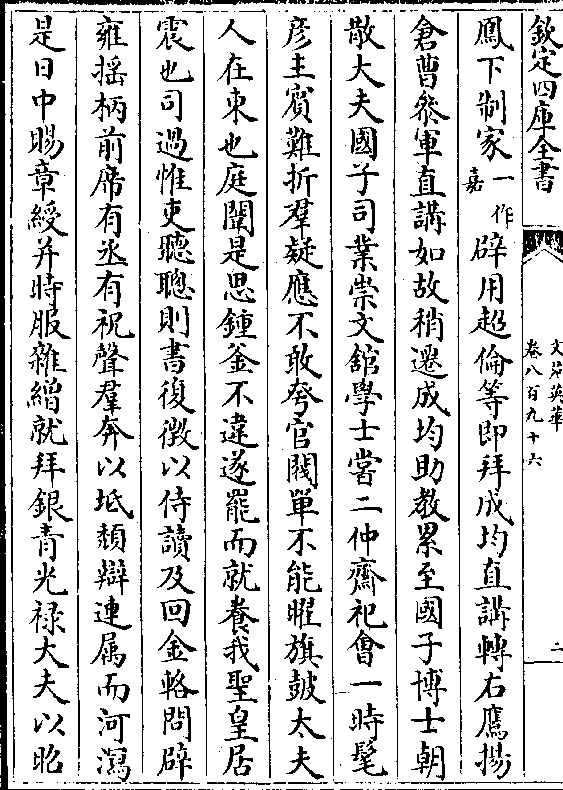 欽定四庫全書
文苑英華
卷八百九十六
二
鳳下制家一作嘉辟用超倫等即拜成均直講轉右鷹揚
倉曹參軍直講如故稍遷成均助教累至國子博士朝
散大夫國子司業崇文館學士當二仲齋祀會一時髦
彦主賓難折羣疑應不敢夸官閥單不能曜旗鼓太夫
人在東也庭闈是思鍾釜不違遂罷而就養我聖皇居
震也司過惟吏聽聰則書復徴以侍讀及回金輅問辟
雍揺柄前席有丞有祝聲羣奔以坻頽辯連属而河瀉
是日中賜章綬并時服雜繒就拜銀青光禄大夫以昭